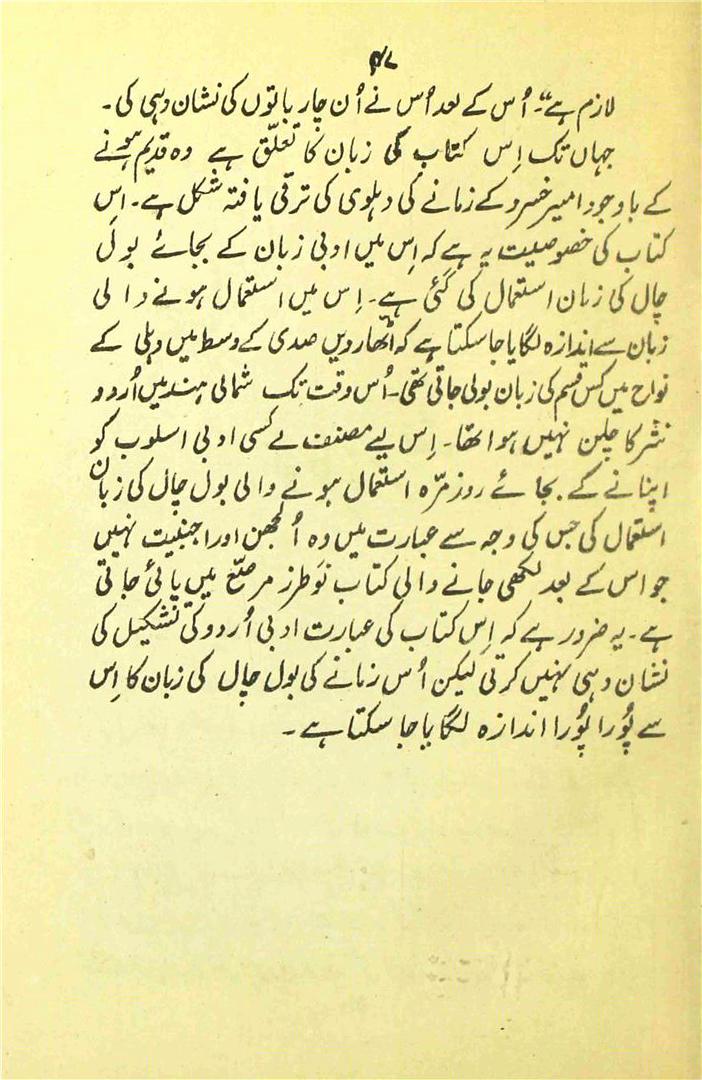 ۴۷
لازم ہے“۔ اُس کے بعد اُس نے اُن چار باتوں کی نشان دہی کی۔
جہاں تک اِس کتاب کی زبان کا تعلّق ہے وہ قدیم ہونے
کے باوجود امیر خسرو کے زمانے کی دہلوی کی ترقی یافتہ شکل ہے۔ اِس
کتاب کی خصوصیت یہ ہے کہ اِس میں ادبی زبان کے بجائے بول
چال کی زبان استعمال کی گئی ہے۔ اِس میں استعمال ہونے والی
زبان سے اندازہ لگایا جا سکتا ہے کہ اٹھارویں صدی کے وسط میں دہلی کے
نواح میں کس قسم کی زبان بولی جاتی تھی۔ اُس وقت تک شمالی ہند میں اُردو
نثر کا چلن نہیں ہوا تھا۔ اِس لیے مصنف نے کسی ادبی اسلوب کو
اپنانے کے بجائے روز مرّہ استعمال ہونے والی بول چال کی زبان
استعمال کی جس کی وجہ سے عبارت میں وہ اُلجھن اور اجنبیت نہیں
جو اس کے بعد لکھی جانے والی کتاب نَو طرز مرصّع میں پائی جاتی
ہے۔ یہ ضرور ہے کہ اِس کتاب کی عبارت ادبی اُردو کی تشکیل کی
نشان دہی نہیں کرتی لیکن اُس زمانے کی بول چال کی زبان کا اِس
سے پُورا پُورا اندازہ لگایا جا سکتا ہے۔